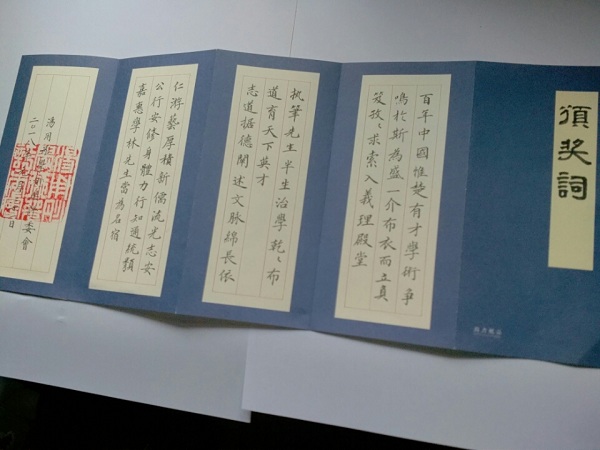 頒奖詞
百年中國惟楚有才學術爭
鳴於斯為盛一介布衣而立真
笈孜々求索入義理殿堂
执筆先生半生治學乾々布
道育天下英才
志道据德闡述文脉綿長依
仁游藝厚積新儒流光志安
公行安修身體力行知通统
嘉惠學林先生當為名宿
委會
二〇一 日